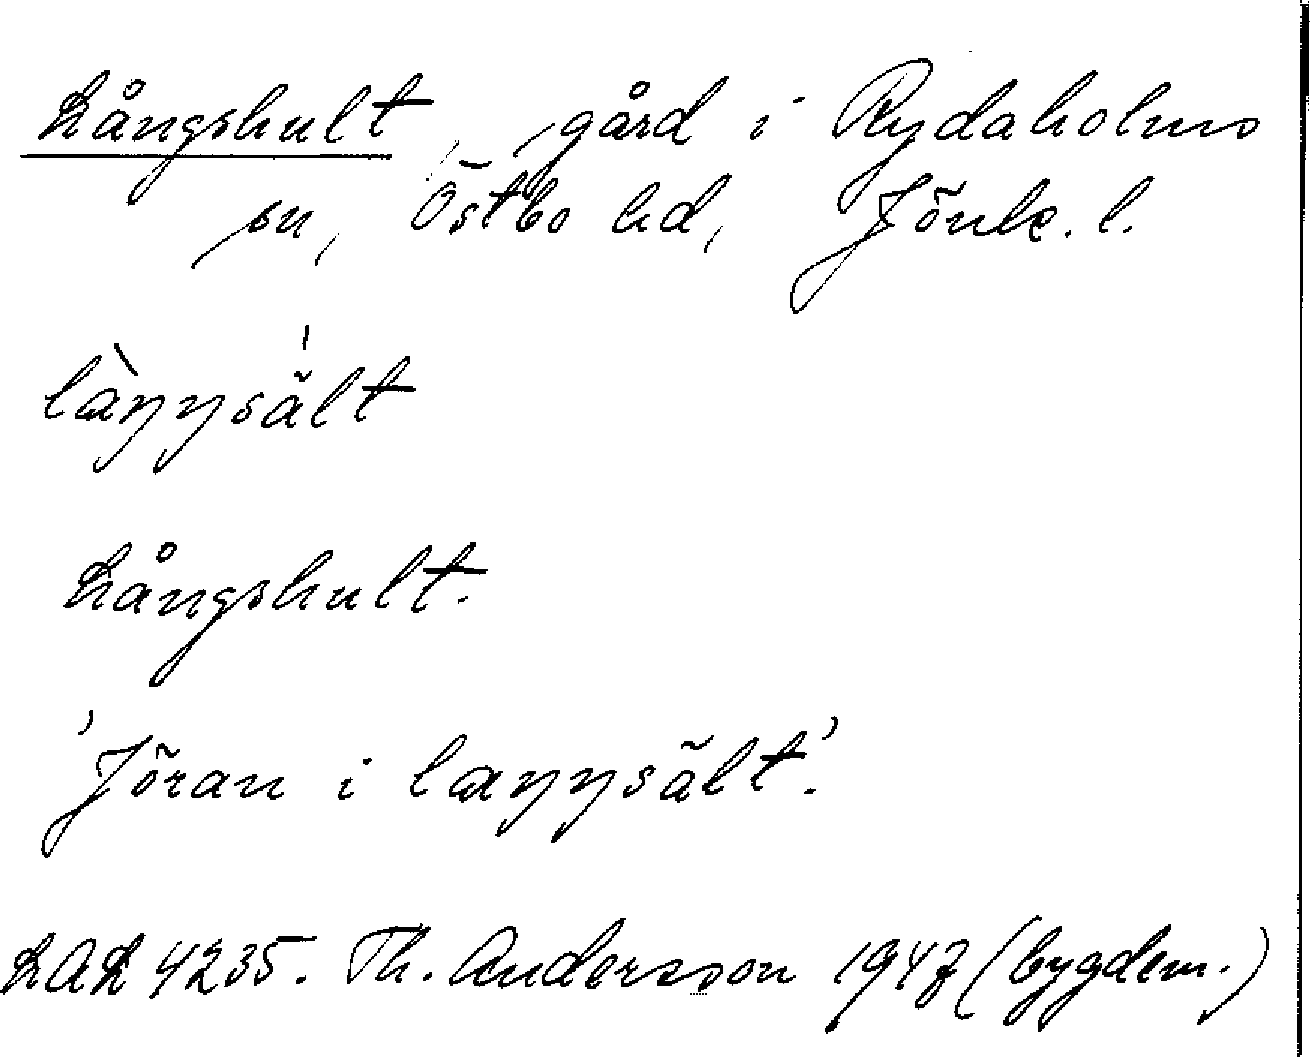 Långshult, gård i Rydaholms
sn, Östbo hd, Jönk. l.
làŋŋsä́lt
Långshult.
'Jöran i laŋŋsält'.
LAL 4235. Th. Andersson 1947 (bygdem.)